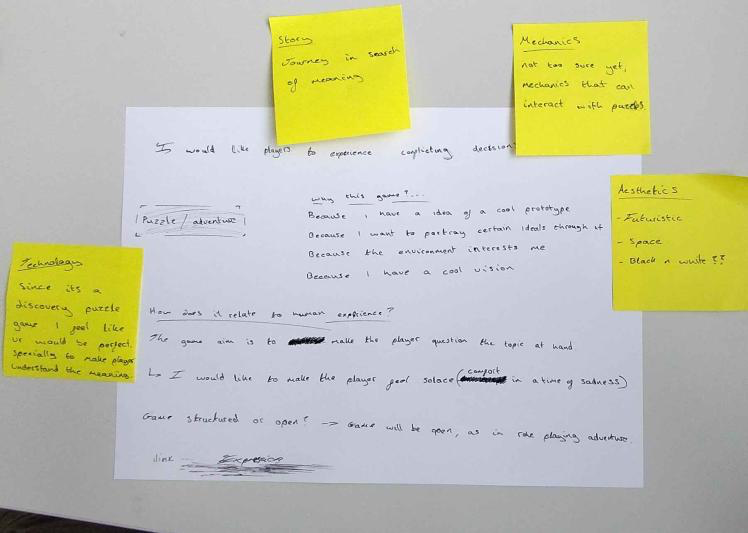 Story
Journey in search
of meaning
Mechanics
not too sure yet,
mechanics that can
interact with
I would like players to experience conflicting decision
Puzzle / adventure
why this game?...
Because I have a idea of a cool prototype
Because I want to portray certain ideals through it
Because the environment interests me
Because I have a cool vision
Aesthetics
- Futuristic
- Space
- Black n white ??
Technology
Since its a
discovery puzzle
game I feel like
vr would be perfect.
specially to make player
understand the meaning.
How does it relate to human experience?
The game aim is to make the player question the topic at hand.
↳ I would like to make the player feel solace (comfort in a time of sadness)
Game structured or open? -> Game will be open, as in role playing adventure.